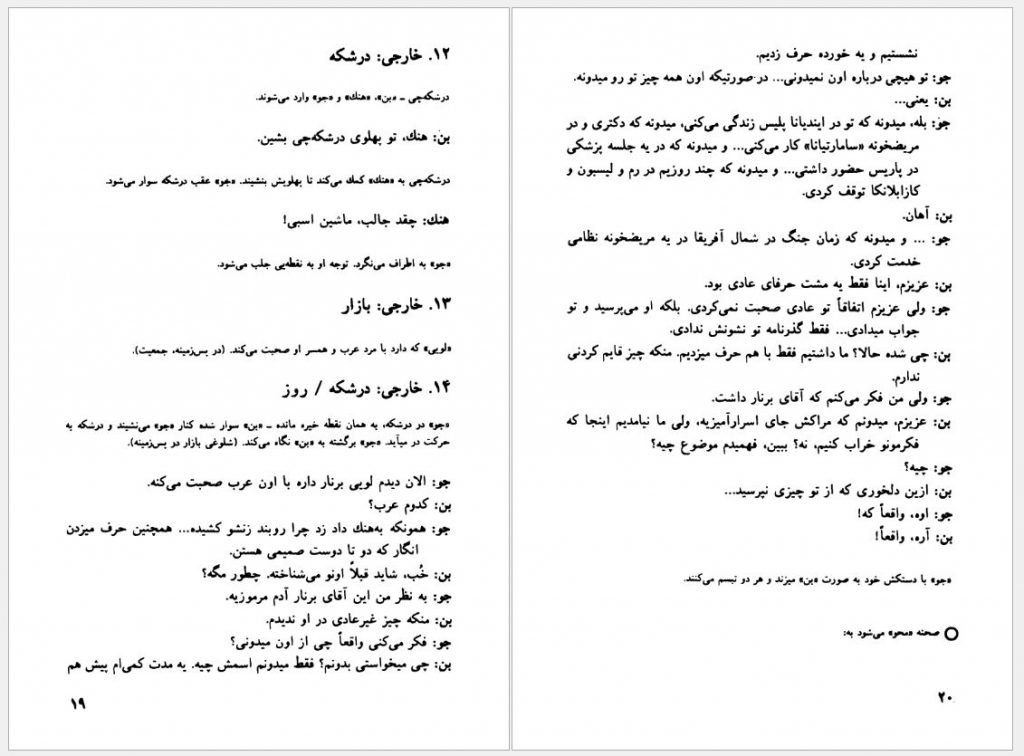 ۱۲. خارجی: درشکه
درشکه‌چی ـ «بن»، «هنك» و «جو» وارد می‌شوند.
بن: هنك، تو پهلوی درشکه‌چی بشین.
درشکه‌چی به «هنك» کمك می‌کند تا پهلویش بنشیند. «جو» عقب درشکه سوار می‌شود.
هنك: چقد جالب، ماشین اسبی!
«جو» به اطراف می‌نگرد. توجه او به نقطه‌یی جلب می‌شود.
۱۳. خارجی: بازار
«لویی» که دارد با مرد عرب و همسر او صحبت می‌کند. (در پس‌زمینه، جمعیت).
۱۴. خارجی: درشکه / روز
«جو» در درشکه، به همان نقطه خیره مانده ـ «بن» سوار شده کنار «جو» می‌نشیند و درشکه به
حرکت در میآید. «جو» برگشته به «بن» نگاه می‌کند. (شلوغی بازار در پس‌زمینه).
جو: الان دیدم لویی برنار داره با اون عرب صحبت می‌کنه.
بن: کدوم عرب؟
جو: همونکه به‌هنك داد زد چرا روبند زنشو کشیده... همچنین حرف میزدن
انگار که دو تا دوست صمیمی هستن.
بن: خُب، شاید قبلاً اونو می‌شناخته. چطور مگه؟
جو: به نظر من این آقای برنار آدم مرموزیه.
بن: منکه چیز غیرعادی در او ندیدم.
جو: فکر می‌کنی واقعاً چی از اون میدونی؟
بن: چی میخواستی بدونم؟ فقط میدونم اسمش چیه. یه مدت کمی‌ام پیش هم
۱۹
نشستیم و یه خورده حرف زدیم.
جو: تو هیچی درباره اون نمیدونی... در صورتیکه اون همه چیز تو رو میدونه.
بن: یعنی...
جو: بله، میدونه که تو در ایندیانا پلیس زندگی می‌کنی، میدونه که دکتری و در
مریضخونه «سامارتیانا» کار می‌کنی... و میدونه که در یه جلسه پزشکی
در پاریس حضور داشتی... و میدونه که چند روزیم در رم و لیسبون و
کازابلانکا توقف کردی.
بن: آهان.
جو: ... و میدونه که زمان جنگ در شمال آفریقا در یه مریضخونه نظامی
خدمت کردی.
بن: عزیزم، اینا فقط یه مشت حرفای عادی بود.
جو: ولی عزیزم اتفاقاً تو عادی صحبت نمی‌کردی. بلکه او می‌پرسید و تو
جواب میدادی... فقط گذرنامه تو نشونش ندادی.
بن: چی شده حالا؟ ما داشتیم فقط با هم حرف میزدیم. منکه چیز قایم کردنی
ندارم.
جو: ولی من فکر می‌کنم که آقای برنار داشت.
بن: عزیزم، میدونم که مراکش جای اسرارآمیزیه، ولی ما نیامدیم اینجا که
فکرمونو خراب کنیم، نه؟ ببین، فهمیدم موضوع چیه؟
جو: چیه؟
بن: ازین دلخوری که از تو چیزی نپرسید...
جو: اوه، واقعاً که!
بن: آره، واقعاً!
«جو» با دستکش خود به صورت «بن» میزند و هر دو تبسم می‌کنند.
صحنه «محو» می‌شود به:
۲۰